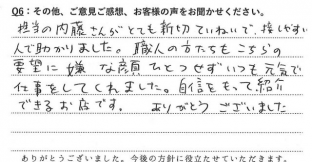 Q6：その他、ご意見ご感想、お客様の声をお聞かせください。
担当の内藤さんがとても親切でていねいで、接しやすい
人で助かりました。職人の方たちもこちらの
要望に嫌な顔ひとつせずいつも元気で
仕事をしてくれました。自信をもって紹介
できるお店です。 ありがとうございました
ありがとうございました。今後の方針に役立たせていただきます。